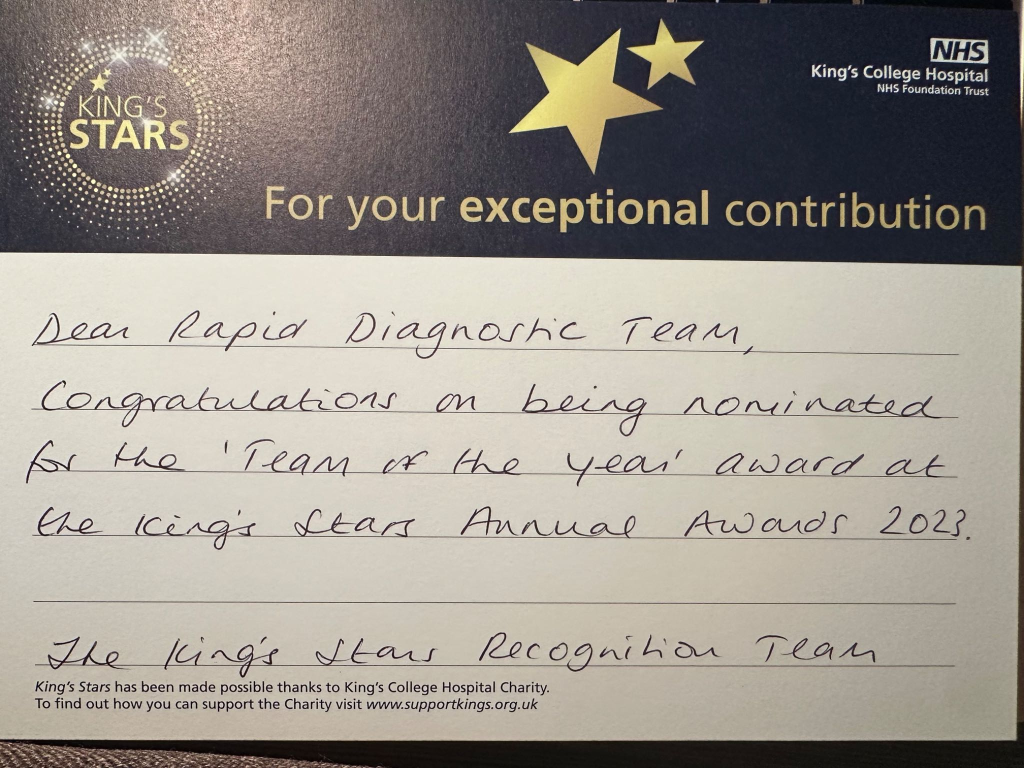 KING'S
STARS
NHS
King's College Hospital
NHS Foundation Trust
For your exceptional contribution
Dear Rapid Diagnostic Team,
Congratulations on being nominated
for the 'Team of the year' award at
the King's Stars Annual Awards 2023.
The King's Stars Recognition Team
King's Stars has been made possible thanks to King's College Hospital Charity.
To find out how you can support the Charity visit www.supportkings.org.uk